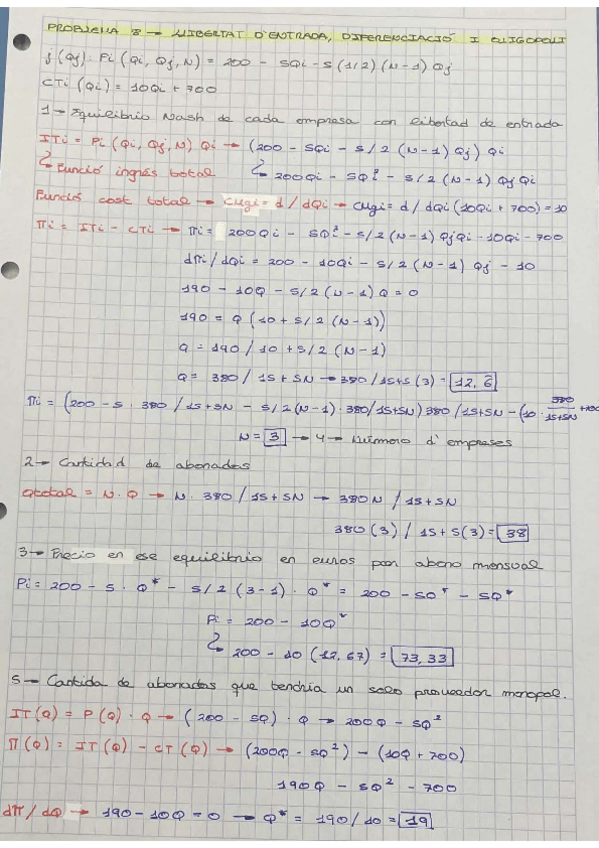 PROBLEMA 8 → LLIBERTAT D'ENTRADA, DIFERENCIACIÓ I OLIGOPOLI
j (Qj): Pi (Qi, Qj, N) = 200 - 5Qi - 5 (1/2) (N-1) Qj
CTi (Qi) = 10Qi + 700
1 → Equilibrio Nash de cada empresa con libertad de entrada
ITi = Pi (Qi, Qj, N) Qi → (200 - 5Qi - 5/2 (N-1) Qj) Qi
↳ Funció ingrés total ↳ 200Qi - 5Qi² - 5/2 (N-1) Qj Qi
Funció cost total → CMgi = d/dQi → CMgi = d/dQi (10Qi + 700) = 10
Πi = ITi - CTi → Πi = 200Qi - 5Qi² - 5/2 (N-1) QjQi - 10Qi - 700
dΠi/dQi = 200 - 10Qi - 5/2 (N-1) Qj - 10
190 - 10Q - 5/2 (N-1) Q = 0
190 = Q (10 + 5/2 (N-1))
Q = 190 / 10 + 5/2 (N-1)
Q = 380 / 15 + 5N → 380 / 15+5 (3) = 12,6
Πi = (200 - 5 · 380 / 15+5N - 5/2 (N-1) · 380/15+5N) 380 / 15+5N - (10 · 380/15+5N + 700
N = 3 → 4 → Número d'empreses
2 → Cantidad de abonados
Qtotal = N · Q → N · 380 / 15 + 5N → 380N / 15 + 5N
380 (3) / 15 + 5 (3) = 38
3 → Precio en ese equilibrio en euros por abono mensual
Pi = 200 - 5 · Q* - 5/2 (3-1) · Q* = 200 - 5Q* - 5Q*
Pi = 200 - 10Q*
↳ 200 - 10 (12,67) = 73,33
5 → Cantida de abonados que tendria un solo proveedor monopol.
IT (Q) = P (Q) · Q → (200 - 5Q) · Q → 200Q - 5Q²
Π (Q) = IT (Q) - CT (Q) → (200Q - 5Q²) - (10Q + 700)
190Q - 5Q² - 700
dΠ/dQ → 190 - 10Q = 0 → Q* = 190/10 = 19